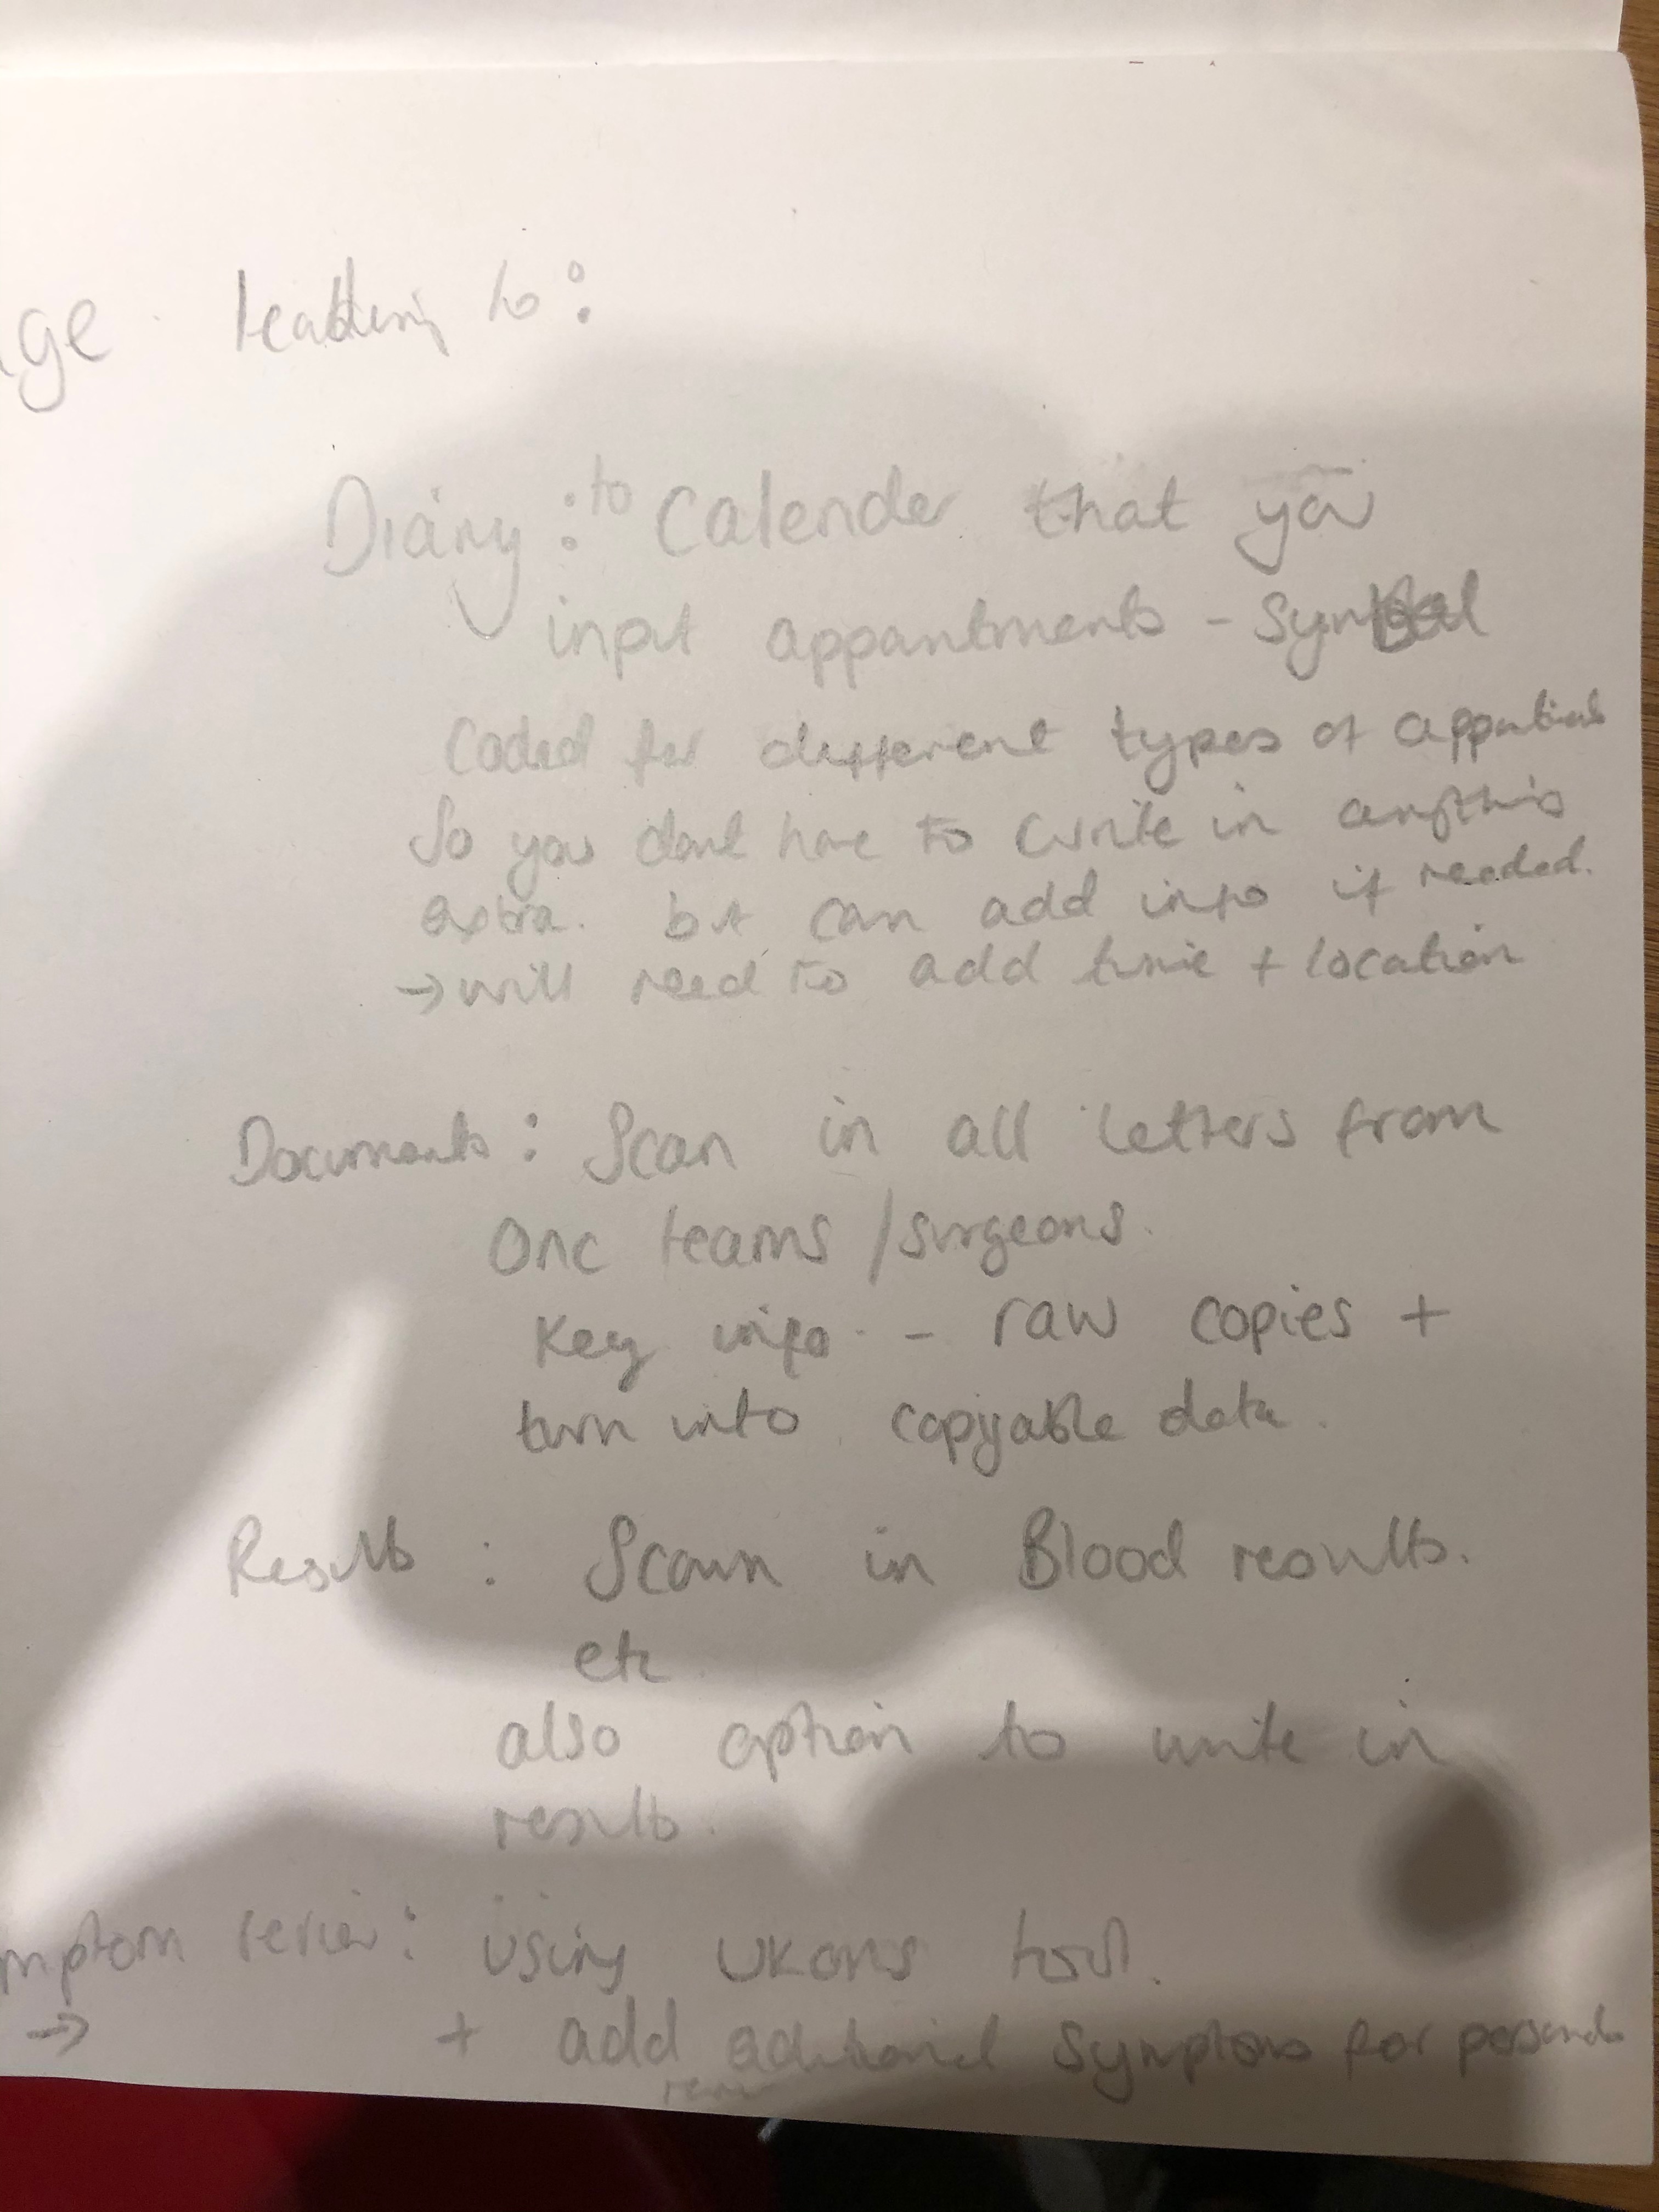 ge leading to:
Diary: to Calender that you
input appantments - Symbol
Coded for different types of
So you dont have to write in anything
extra. but can add info if needed.
→ will need to add time + location
Documents: Scan in all letters from
onc teams / surgeons.
Key info - raw copies +
turn into copyable data.
Results: Scan in Blood results.
etc
also option to write in
results.
mptom review: Using UKONS tool.
→ + add additional symptoms for
review